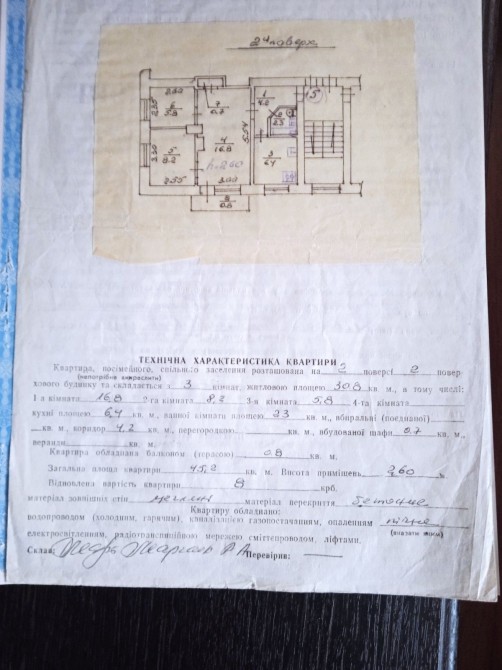 2й поверх.
15
2.30
6
5.8
2.35
7
0.7
1
4.2
2
2.3
5.54
4
16.8
h=2.60
3
6.4
5
8.2
2.55
3.00
8
0.8
ТЕХНІЧНА ХАРАКТЕРИСТИКА КВАРТИРИ
Квартира, посімейного, спільного заселення розташована на 2 поверсі 2 повер-
(непотрібне закреслити)
хового будинку та складається з 3 кімнат, житловою площею 30.8 кв. м., а тому числі:
1-а кімната 16,8 2-га кімната 8,2 3-я кімната 5,8 4-та кімната
кухні площею 6,4 кв. м., ванної кімнати площею 2.3 кв. м., вбиральні (поєднаної)
кв. м., коридор 4.2 кв. м., перегородкою кв. м., вбудованої шафи 0.7 кв. м.,
веранди кв. м.
Квартира обладнана балконом (терасою) 0.8 кв. м.
Загальна площа квартири 45,2 кв. м. Висота приміщень 2.60
Відновлена вартість квартири крб.
матеріал зовнішніх стін матеріал перекриття бетонне
Квартиру обладнано:
водопроводом (холодним, гарячим), каналізацією газопостачанням, опаленням пічне
(вказати яким)
електроосвітленням, радіотрансляційною мережею сміттєпроводом, ліфтами.
Склав: Перевірив: